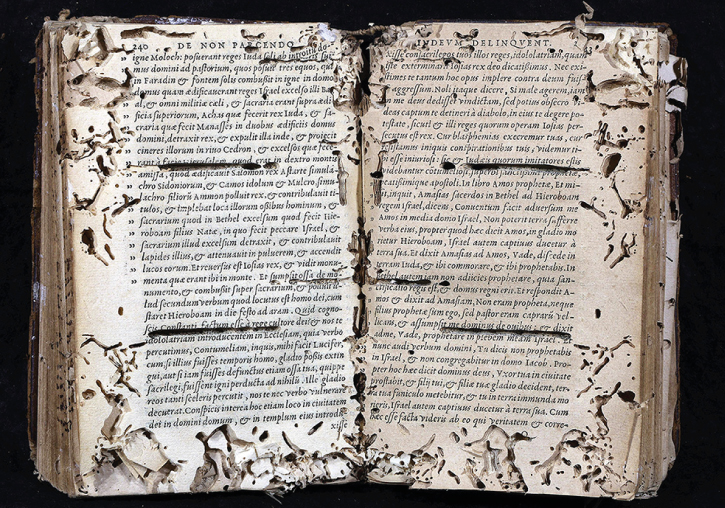 240 DE NON PARCENDO
igne Moloch: posuerant reges Iuda
mus domini ad pastorium, quos posuit tres equos, qui
in Faradin & fontem solis combussit in igne in domo
domus quam ædificauerant reges Israel excelso illi Ba-
al, & omni militiæ cæli, & sacraria erant supra ædi-
ficia superiorum, Achas quæ fecerit rex Iuda, & sa-
craria quæ fecit Manasses in duobus ædificiis domus
domini, detraxit rex, & expulit illa inde, & proiecit
cineres illorum in riuo Cedron, & excelsos quæ fece-
rant à facie quod erat in dextro montis
amissa, quod ædificauit Salomon rex Astarte simula-
chro Sidoniorum, & Camos idolum & Mulcro simu-
lachro filiorū Ammon polluit rex, & contribulauit ti-
tulos, & impleuit loca illorum ossibus hominum, &
sacrarium quod in Bethel excelsum quod fecit Hie-
roboam filius Natæ, in quo fecit peccare Israel, &
sacrarium illud excelsum detraxit, & contribulauit
lapides illius, & attenuauit in puluerem, & accendit
lucos eorum. Et reuersus est Iosias rex, & vidit monu-
menta quæ erant ibi in monte. Et sumpsit ossa de mo-
numento, & combussit super sacrarium, & polluit il-
lud secundum verbum quod locutus est homo dei, cum
staret Hieroboam in die festo ad aram. Quid cogno-
scis Constanti, factum esse à rege cultore dei & nos te
idololatriam introducentem in Ecclesiam, quia verbo
percutimus, Contumeliam, inquis, mihi facit Lucifer,
cum si illius fuisses temporis homo, gladio possis extin
gui, aut si iam fuisses defunctus etiam ossa tua, quippe
sacrilegi, fuissent igni perducta ad nihili. Ille gladio
reos tanti sceleris percutit, nos te nec verbo vulnerare
decuerat. Conspicis interea hoc etiam loco in ciuitatem
dei in domini domum, & in templum eius introdu-
xisse
IN DEVM DELINQVENT. 2
xisse con sacrilegos tuos illos reges, idololatriam, quam
isse exterminatam Iosias rex deo dicatissimus. Nec exi-
stimes te tantum hoc opus implere contra deum fuis-
aggressum. Noli itaque dicere, Si male egerem, iam
in me deus dedisset vindictam, sed potius obsecro
deas caput te detineri à diabolo, in eius te degere po-
testate, sicut & illi reges quorum operam Iosias per-
secutus est rex. Cur blasphemias execremur tuas, cur
resistamus iniquis conspirationibus tuis, videmur ti-
bi esse iniuriosi: sic & Iudæi quorum imitatores estis
putabantur
beatissimique apostoli. In libro Amos prophetæ, Et mi-
sit, inquit, Amasias sacerdos in Bethel ad Hieroboam
regem Israel, dicens, Conuentum facit aduersum me
Amos in media domo Israel, Non poterit terra sufferre
verba eius, propter quod hæc dicit Amos, in gladio mo
rietur Hieroboam, Israel autem captiuus ducetur à
terra sua. Et dixit Amasias ad Amos, Vade, discede in
terram Iuda, & ibi commorare, & ibi prophetabis. In
Bethel autem iam non adiicies prophetare, quia san-
ctificatio regis est, & domus regni erit. Et respondit A-
mos & dixit ad Amasiam, Non eram propheta, neque
filius prophetæ sum ego, sed pastor eram caprarū vel-
licans, & assumpsit me dominus de ouibus, & dixit
ad me, Vade, prophetare in plebem meam Israel. Et
nunc audi verbum domini, Tu dicis non prophetabis
in Israel, & non congregabitur in domo Iacob. Pro-
pter hoc hæc dicit dominus deus, Vxor tua in ciuitate
prostabit, & filij tui, & filiæ tuæ gladio decident, ter-
ra tua funiculo metebitur, & tu in terra immunda mo
rieris, Israel autem captiuus ducetur à terra sua. Cum
hæc esse facta videris ab eo qui veritatem & corre-